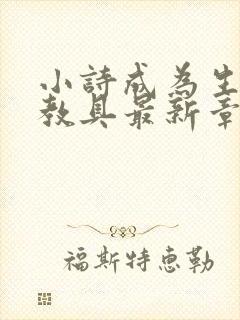 小詩成為生
教具最新章
福斯特惠勒